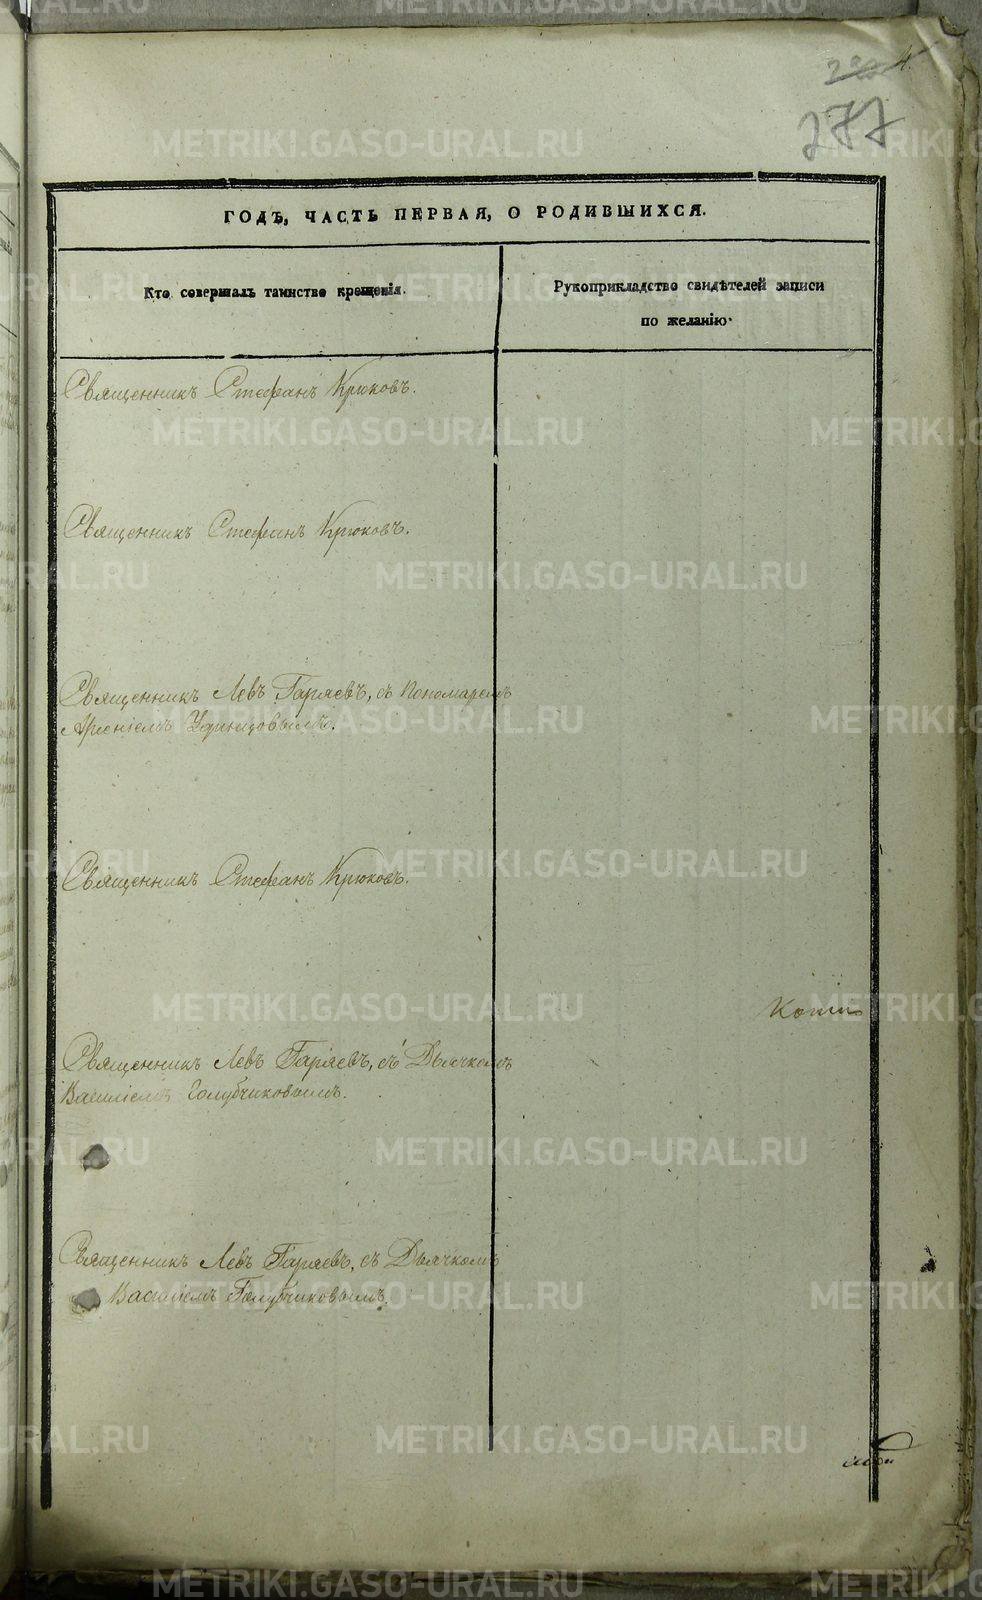 4.
277
ГОДЪ, ЧАСТЬ ПЕРВАЯ, О РОДИВШИХСЯ.
Кто совершалъ таинство крещенія.
Рукоприкладство свидѣтелей записи
по желанію.
Священникъ Стефанъ Крюковъ.
Священникъ Стефанъ Крюковъ.
Священникъ Левъ Гаряевъ, съ Пономаремъ
Арсеніемъ Удинцовымъ.
Священникъ Стефанъ Крюковъ.
Священникъ Левъ Гаряевъ, съ Дьячкомъ
Василіемъ Голубчиковымъ.
Священникъ Левъ Гаряевъ, съ Дьячкомъ
Василіемъ Голубчиковымъ.
METRIKI.GASO-URAL.RU